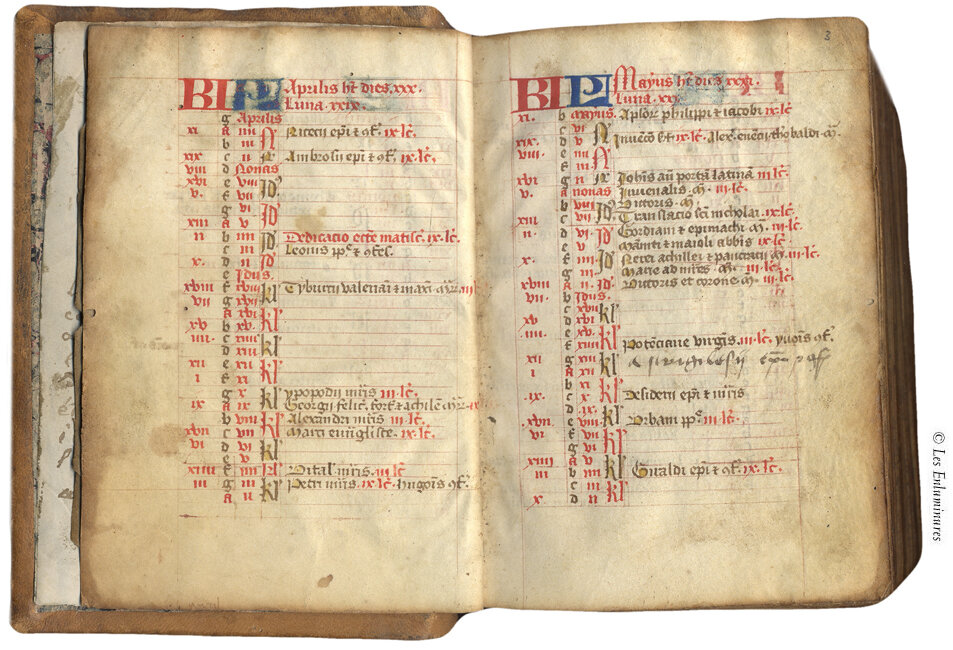 KL Aprilis ht dies xxx.
Luna xxix.
g Aprilis
xi A iiii N Nicetii epi 𝑒t 9f. ix. lc.
b iii N
xix c ii N Ambrosii epi 𝑒t 9f. ix lc.
viii d Nonas
xvi e viii Id
v f vii
g vi Id
xiii A v
ii b iiii Id Dedicacio eccle matisc. ix. lc.
c iii Leonis pp. 𝑒t 9fes.
x d ii Id
e Idus
xviii f xviii kl Tyburcii valeriani 𝑒t maximi iii
vii g xvii
A xvi kl
xv b xv
iiii c xiiii kl
d xiii
xii e xii kl
i f xi
g x kl ypopodii mris iii lc.
ix A ix Georgii felic, fort 𝑒t achilei ix
b viii kl Alexandri mris iii lc.
xvii c vii Marci euugliste. ix. lc.
vi d vi kl
e v
xiiii f iiii kl Vital mris. iii lc
iii g iii kl Petri mris. ix. lc. hugois 9f.
A ii
3
KL Mayus ht dies xxxi.
Luna xxx
xi. b mayus. Aplor philippi 𝑒t iacobi ix. lc
c vi N Invenco ix. lc. Alex. eventii thobaldi m.
xix. d v
viii. e iiii N
f iii
xvi g ii N Johis an porta latina iii lc.
v. A nonas Juvenalis m. iii. lc.
b viii Id Victoris. m.
xiii c vii Translacio sci nicholai. ix. lc.
ii d vi Id Gordiani 𝑒t epimachi m. iii. lc.
e v Mamti 𝑒t maioli abbis ix. lc.
x. f iiii Id Nerei achillei 𝑒t pancracii m. iii. lc.
g iii Marie ad mres. m. iii. lc.
xviii A ii. Id Victoris et corone m. iii. lc
vii. b Idus.
c xvii kl
xv d xvi
iiii. e xv. kl
f xiiii Potenciane virginis. iii. lc. yvois 9f.
xii g xiii kl
i A xii
b xi kl
ix. c x Desiderii epi 𝑒t mris
d ix. kl
xvii. e viii Urbani pp. iii lc.
vi f vii kl
g vi
xiiii A v kl Giraldi epi 𝑒t 9f. ix. lc.
iii b iiii
c iii kl
x. d ii
© Les Enluminures